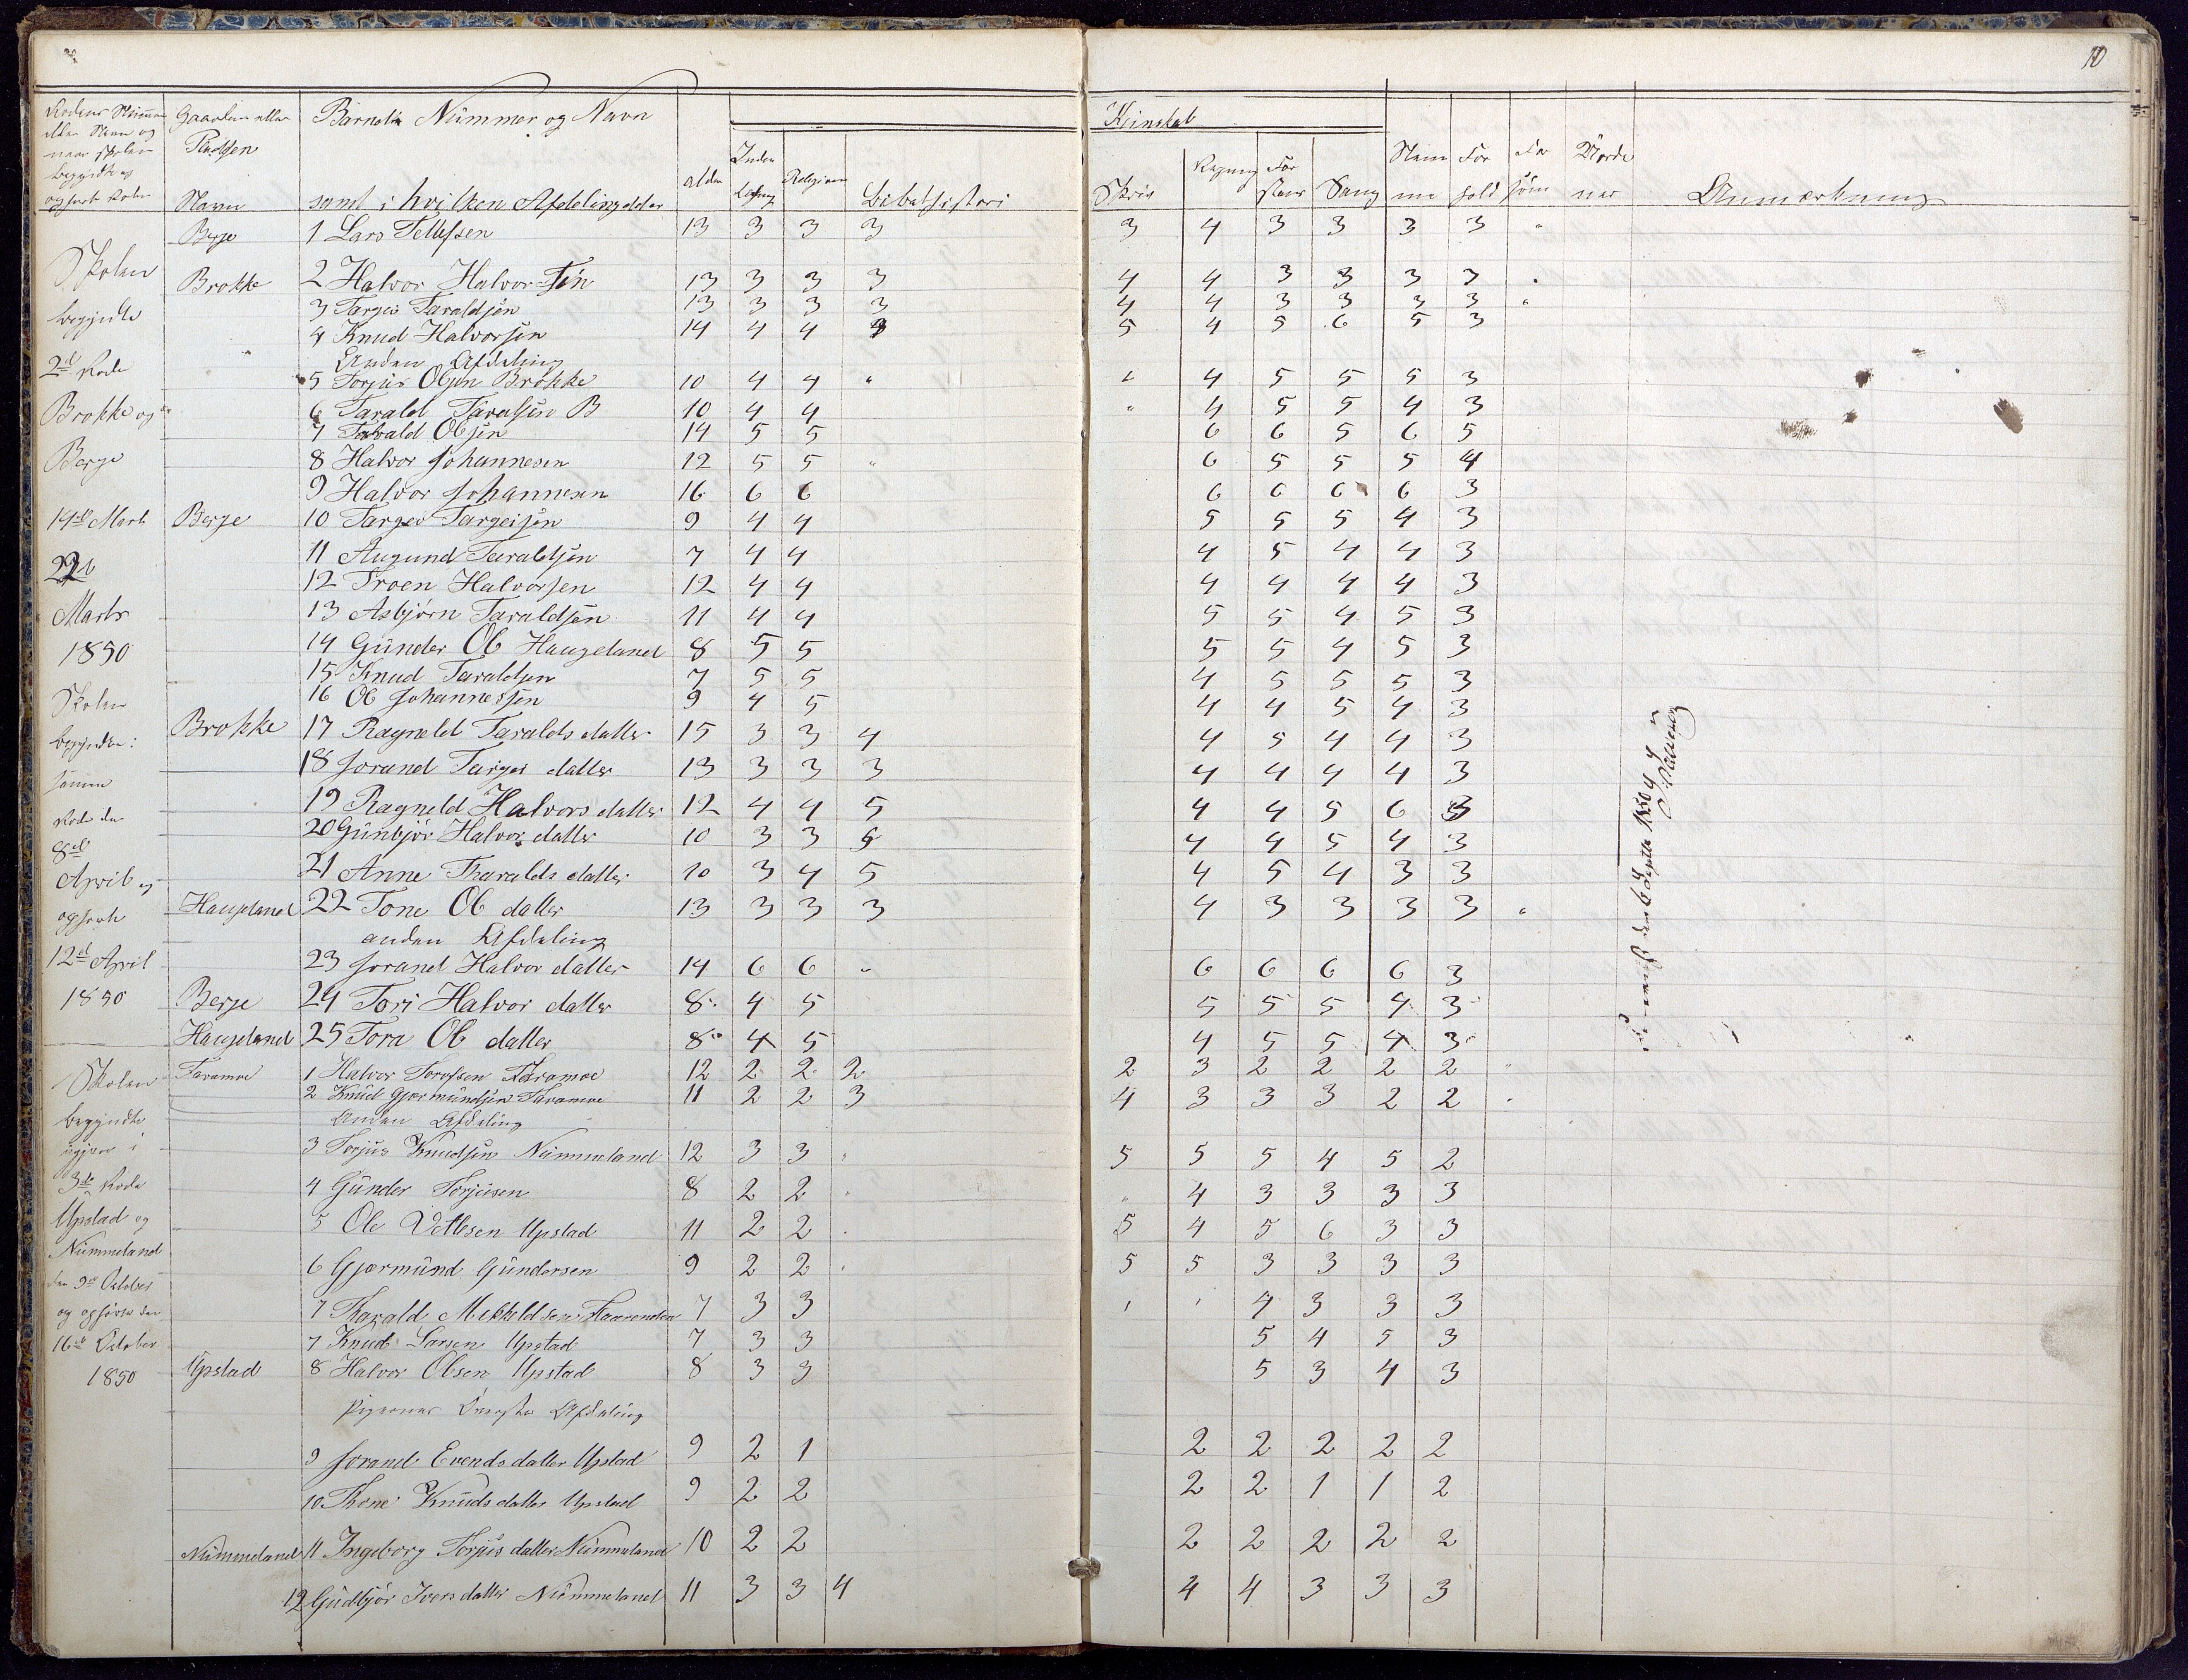 10
Barnets Nummer og Navn
samt i hvilken Afdeling
Navn
Alder
Religion
Bibelhistori
Skriv
Regning
Sang
Anmærkning
Berge 1 Lars Tellefsen 13 3 3 3 3 4 3 3 3 3 "
Skolen
Brokke 2 Halvor Halvor Søn 13 3 3 3 4 4 3 3 3 3 "
begyndte 3 Targei Taraldsøn 13 3 3 3 4 4 3 3 3 3 "
4 Knud Halvorsøn 14 4 4 5 4 5 6 5 3
Anden Afdeling
2d Rode 5 Torjus Olsøn Brokke 10 4 4 " " 4 5 5 5 3
Brokke og 6 Tarald Taralsøn B 10 4 4 " 4 5 5 4 3
7 Tarald Olsøn 14 5 5 6 6 5 6 5
Berge 8 Halvor Johannesen 12 5 5 " 6 5 5 5 4
9 Halvor Johannesen 16 6 6 6 6 6 6 3
14de Marts Berge 10 Targei Targeisøn 9 4 4 5 5 5 4 3
11 Augund Taraldsøn 7 4 4 4 5 4 4 3
12 Troen Halvorsen 12 4 4 4 4 4 4 3
Marts 13 Asbjørn Taraldsøn 11 4 4 5 5 4 5 3
1850 14 Gunder Ol Haugeland 8 5 5 5 5 4 5 3
15 Knud Taraldsen 7 5 5 4 5 5 5 3
Skolen 16 Ol Johannessøn 9 4 5 4 4 5 4 3
Brokke 17 Ragneld Taralds datter 15 3 3 4 4 5 4 4 3
18 Jorand Targei datter 13 3 3 3 4 4 4 4 3
19 Ragneld Halvors datter 12 4 4 5 4 4 5 6 3
20 Gunbjør Halvor datter 10 3 3 5 4 4 5 4 3
8de
April og 21 Anne Tharalds datter 10 3 4 5 4 5 4 3 3
Haugeland 22 Tone Ol datter 13 3 3 3 4 3 3 3 3 "
anden Afdeling
12d April 23 Jorand Halvor datter 14 6 6 " 6 6 6 6 3
1850 Berge 24 Tori Halvor datter 8 4 5 5 5 5 4 3
Haugeland 25 Tora Ol datter 8 4 5 4 5 5 4 3
Skolen Taramoe 1 Halvor Torofsen Taramoe 12 2 2 2 2 3 2 2 2 2 "
2 Knud Gjermundsen Taramoe 11 2 2 3 4 3 3 3 2 2 "
begyndte Anden Afdeling
igjen i 3 Torjus Knudsøn Nummeland 12 3 3 5 5 5 4 5 2
3de Rode 4 Gunder Torjusen 8 2 2 " 4 3 3 3 3
Upstad og 5 Ole Vetlesen Upstad 11 2 2 5 4 5 6 3 3
Nummeland
6 Gjermund Gundersen 9 2 2 5 5 3 3 3 3
den 9de October
og ophørte den 7 Tharald Mekkeldsen 7 3 3 4 3 3 3
16de October 7 Knud Larsen Upstad 7 3 3 5 4 5 3
1850 Upstad 8 Halvor Olsen Upstad 8 3 3 5 3 4 3
Pigernes Øverste Afdeling
9 Jorand Evends datter Upstad 9 2 1 2 2 2 2 2
10 Thone Knuds datter Upstad 9 2 2 2 2 1 1 2
Nummeland 11 Ingeborg Torjus datter Nummeland 10 2 2 2 2 2 2 2
12 Gudbjør Ivers datter Nummeland 11 3 3 4 4 4 3 3 3